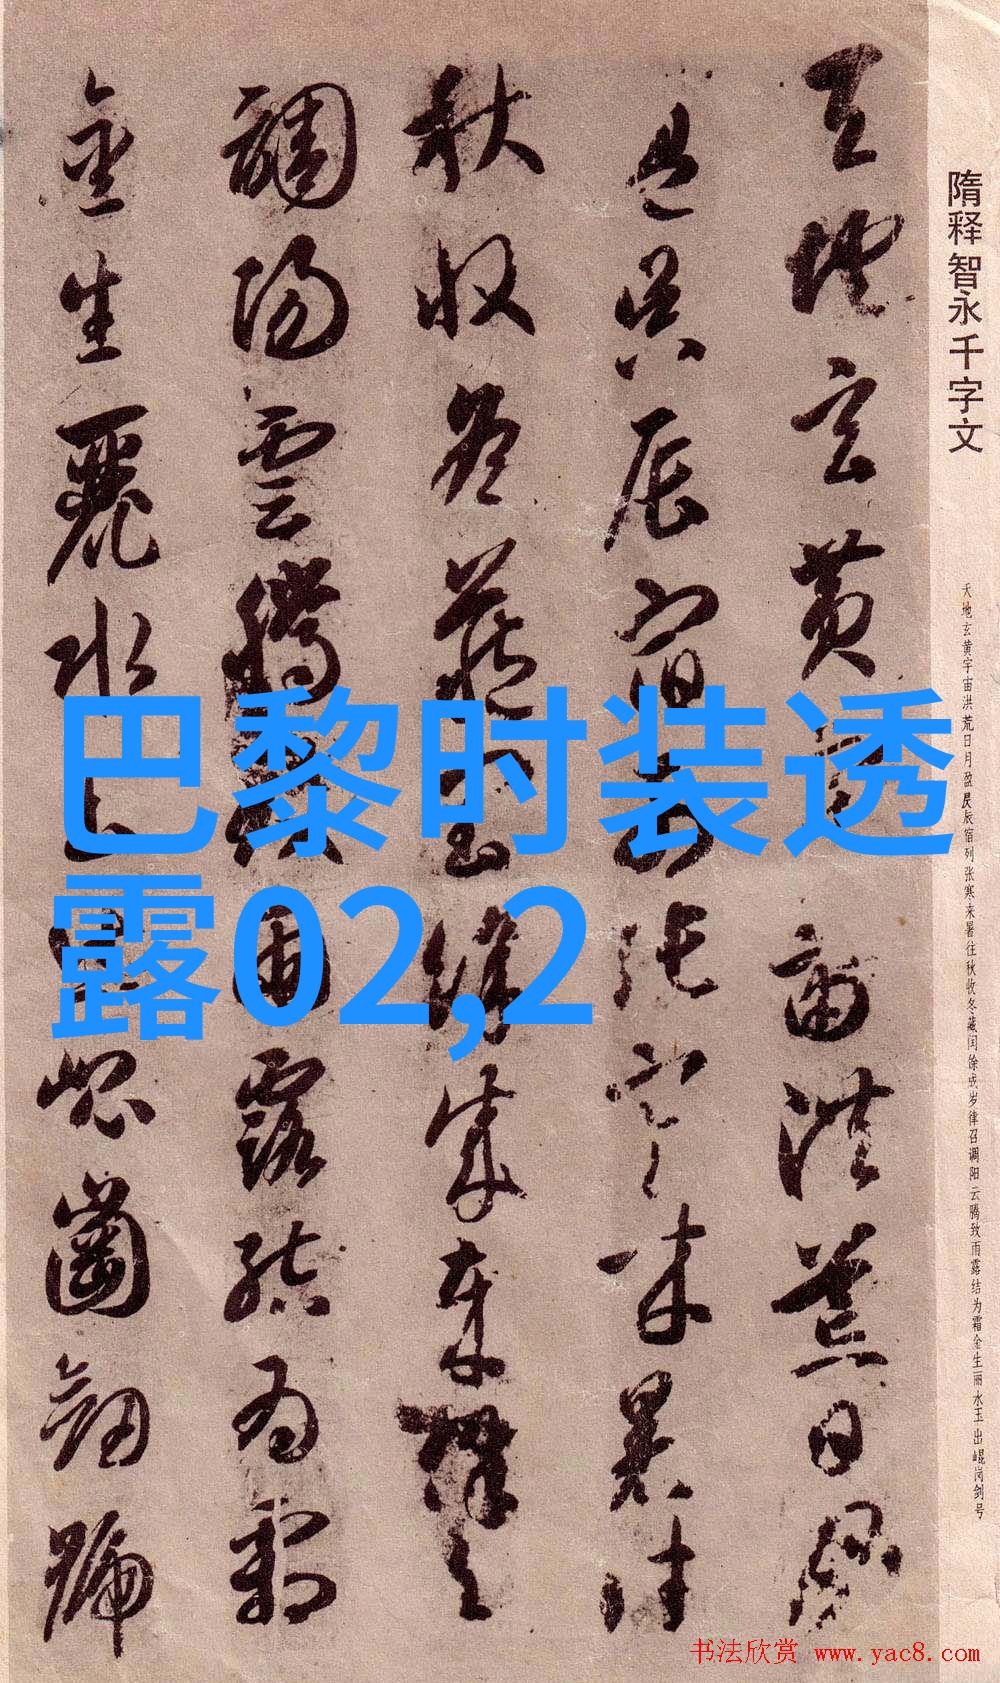 隋释智永千字文
天地玄黄宇宙洪荒日月盈昃辰宿列张寒来暑往秋收冬藏闰馀成岁律召调阳云腾致雨露结为霜金生丽水玉出崐岗剑号
天地玄黄宇宙洪荒日月
盈昃辰宿列张寒来暑往
秋收冬藏闰馀成岁律吕
調陽雲騰致雨露結為霜
金生麗水玉出崐崗劒號
巴黎时装透
露02,2
书法欣赏 www.yac8.com